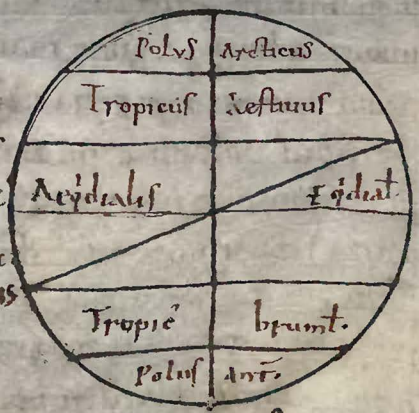 Polus Arcticus
Tropicus Aestiuus
Aeq̇dialis Eq̇dial̄
Tropic̄ brumł.
Polus Ant̄.